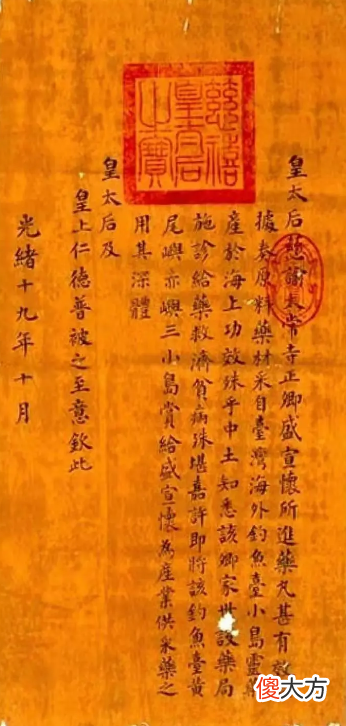 慈禧皇太后之寶
皇太后慈諭太常寺正卿盛宣懷所進藥丸甚有效
據奏原料藥材采自臺灣海外釣魚臺小島靈藥
產於海上功效殊乎中土知悉該卿家世設藥局
施診給藥救濟貧病殊堪嘉許即將該釣魚臺黃
尾嶼赤嶼三小島賞給盛宣懷為產業供采藥之
用其深體
皇太后及
皇上仁德普被之至意欽此
光緒十九年十月
傻大方